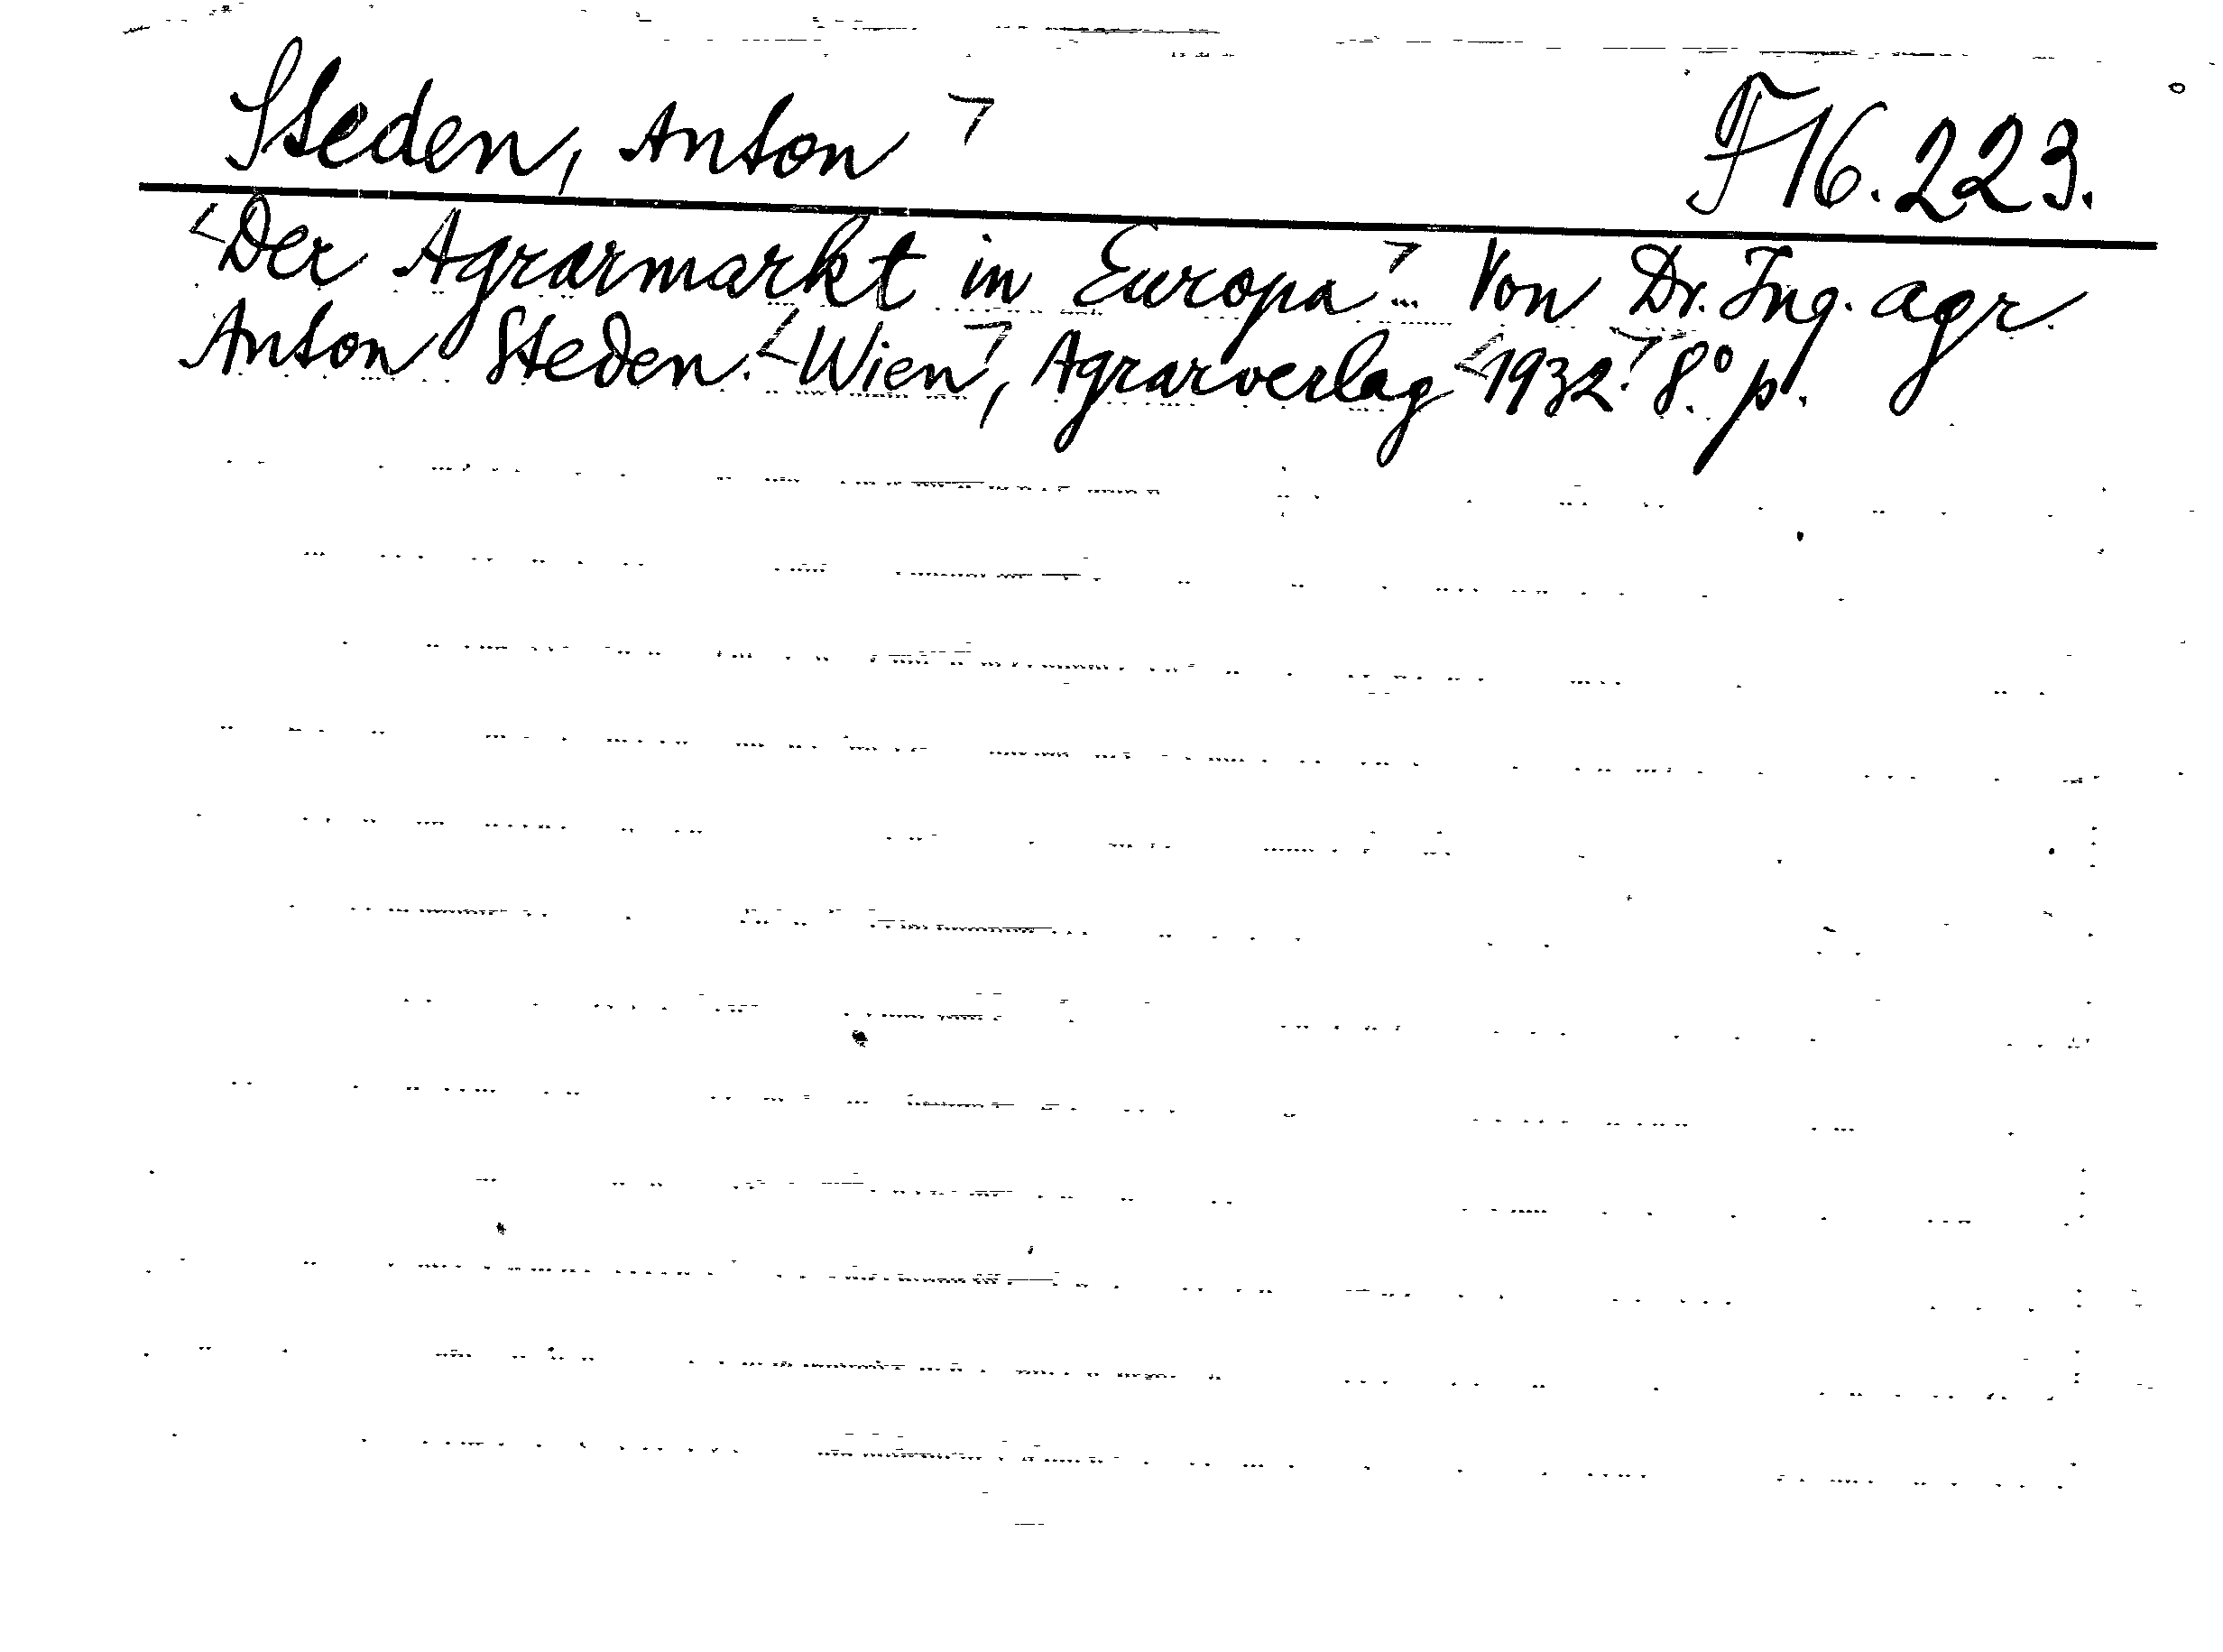 Steden, Anton ¬ F 16.223.
<Der Agrarmarkt in Europa¬... Von Dr. Ing. agr.
Anton Steden. <Wien¬, Agrarverlag <1932.¬ 8.° p.